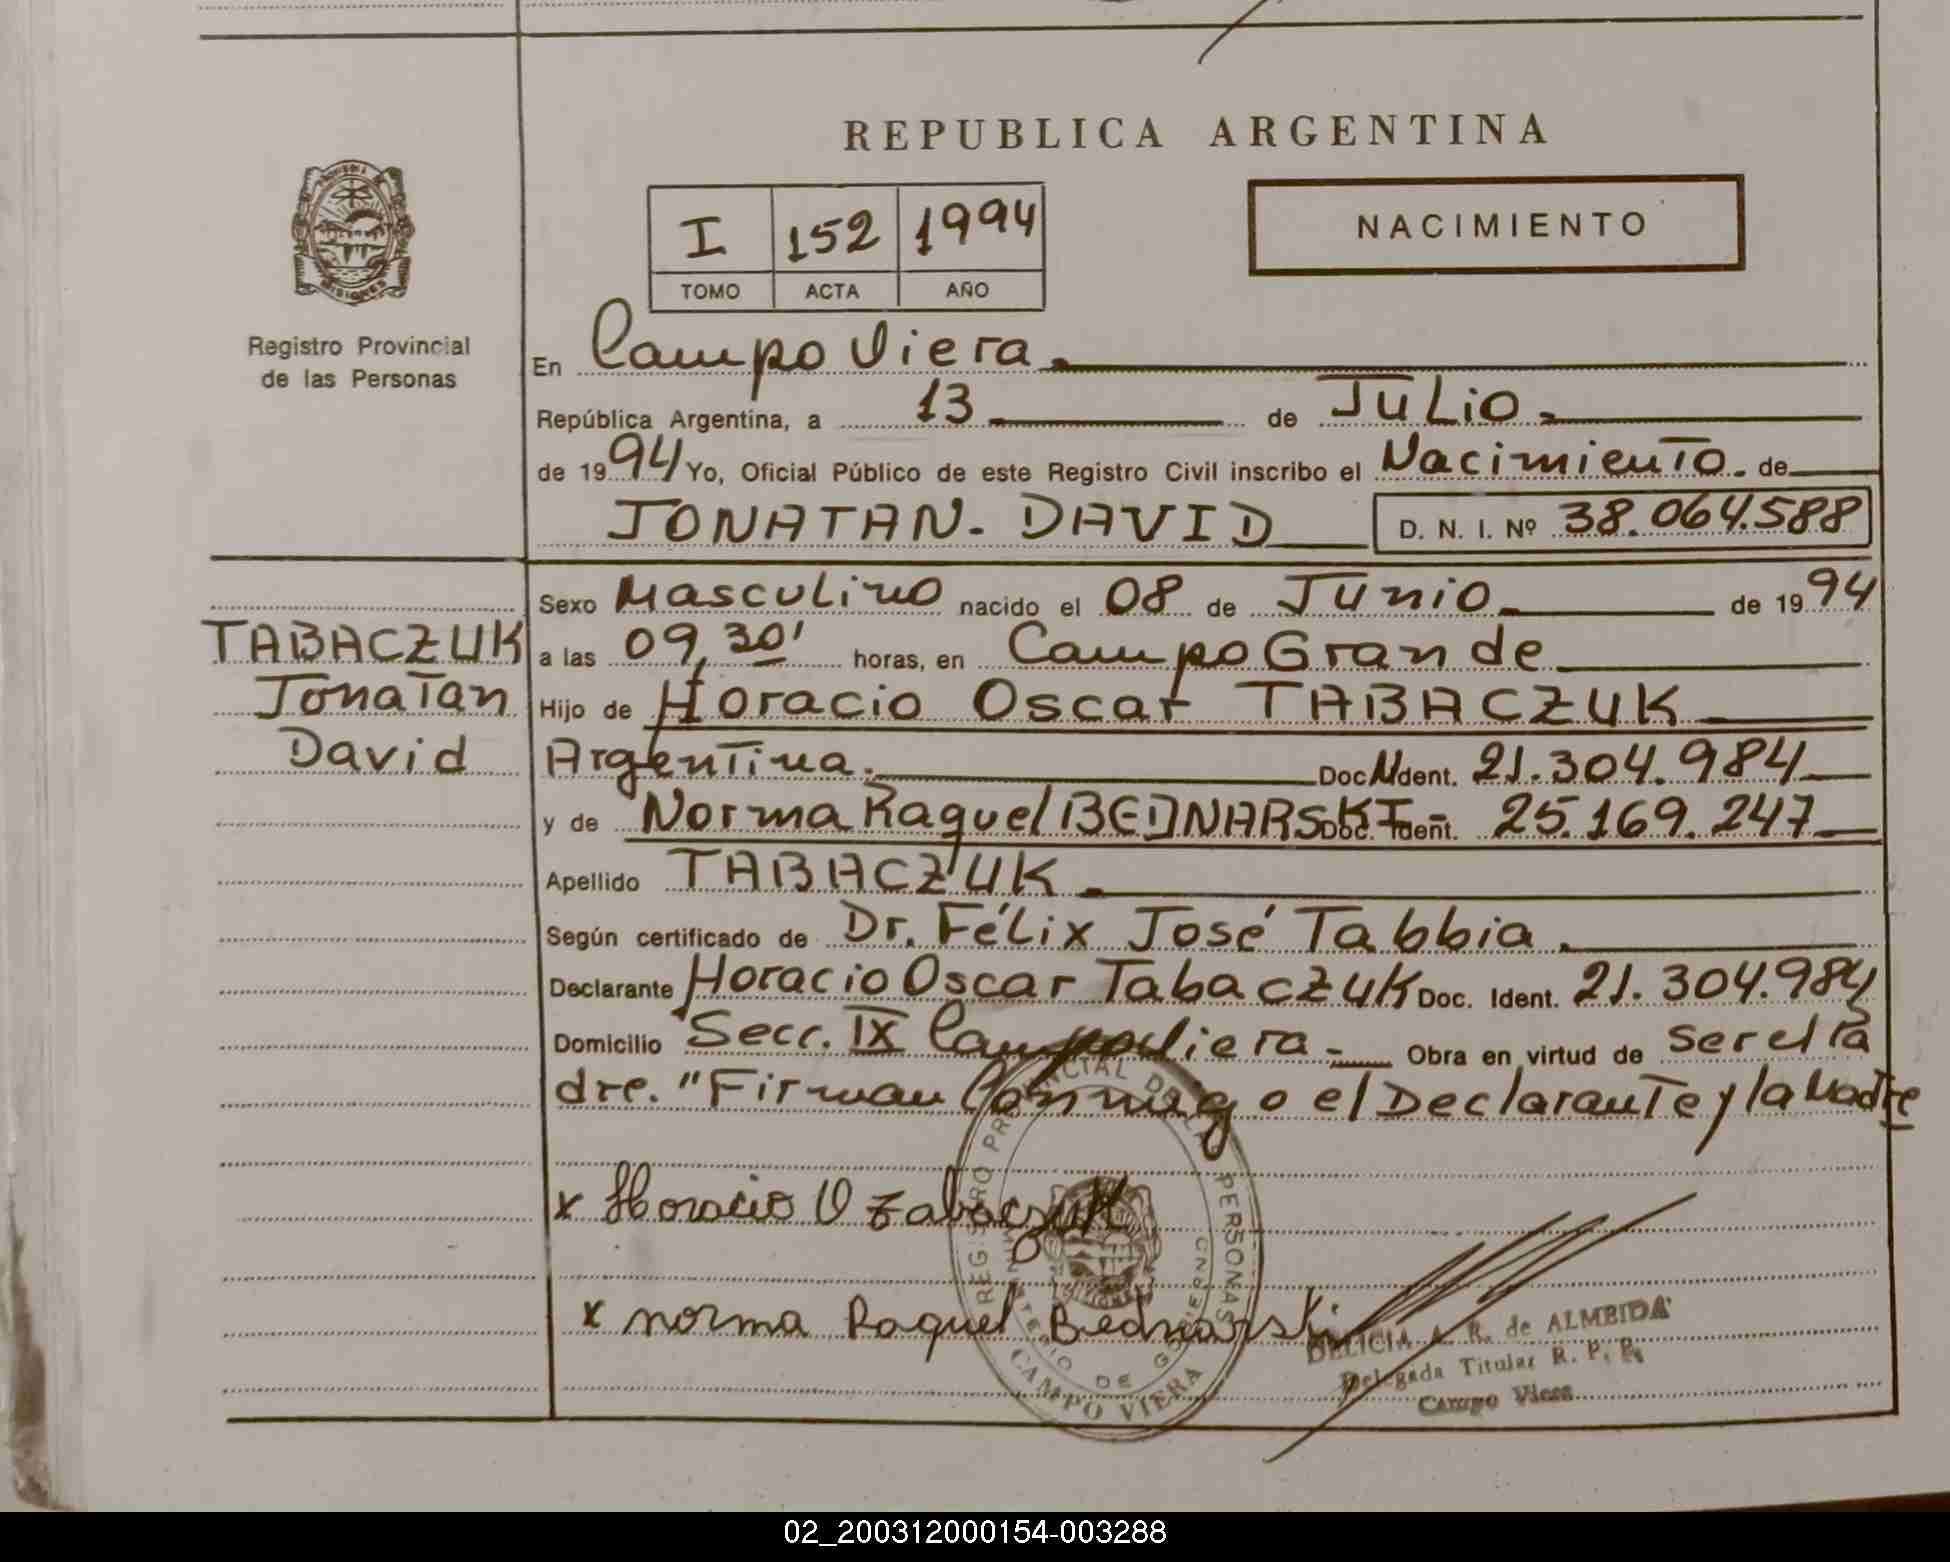 REPUBLICA ARGENTINA
I 152 1994
TOMO ACTA AÑO
NACIMIENTO
MISIONES
Registro Provincial
de las Personas
En Campo Viera.
República Argentina, a 13 de Julio.
de 1994 Yo, Oficial Público de este Registro Civil inscribo el Nacimiento. de
JONATAN. DAVID D. N. I. Nº 38.064.588
TABACZUK
Jonatan
David
Sexo Masculino nacido el 08 de Junio de 1994
a las 09,30' horas, en Campo Grande
Hijo de Horacio Oscar TABACZUK
Argentina. Doc. Ident. 21.304.984
y de Norma Raquel BEDNARSKI- Doc. Ident. 25.169.247
Apellido TABACZUK
Según certificado de Dr. Félix José Tabbia.
Declarante Horacio Oscar Tabaczuk Doc. Ident. 21.304.984
Domicilio Secc. IX Campo Viera - Obra en virtud de ser el Pa
dre. "Firman Conmigo el Declarante y la Madre
x Horacio O Tabaczuk
x norma Raquel Bednarski
REGISTRO PROVINCIAL DE LAS PERSONAS
MINISTERIO DE GOBIERNO
CAMPO VIERA
DELICIA A. R. de ALMEIDA
Delegada Titular R. P. P.
Campo Viera
02_200312000154-003288